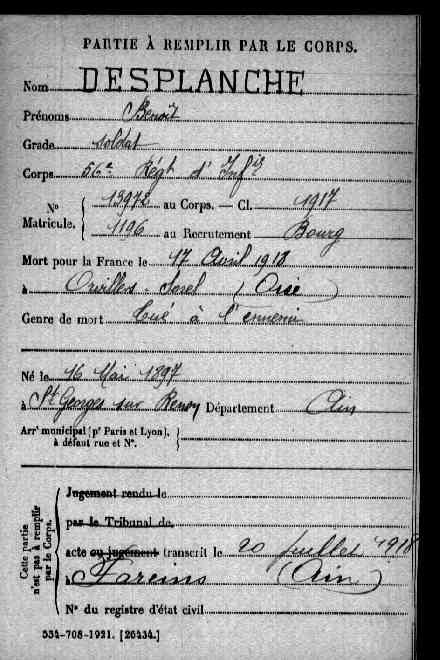 PARTIE À REMPLIR PAR LE CORPS.
Nom DESPLANCHE
Prénoms Benoît
Grade soldat
Corps 56e Régt d'Infie
N° 13972 au Corps. — Cl. 1917
Matricule. 1196 au Recrutement Bourg
Mort pour la France le 17 Avril 1918
à Orvillers-Sorel (Oise)
Genre de mort Tué à l'ennemi
Né le 16 Mai 1897
à St Georges sur Renon Département Ain
Arrt municipal (pr Paris et Lyon),
à défaut rue et N°.
Cette partie
n'est pas à remplir
par le Corps.
Jugement rendu le
par le Tribunal de
acte ou jugement transcrit le 20 juillet 1918
à Fareins (Ain)
N° du registre d'état civil
534-708-1921. [26434.]